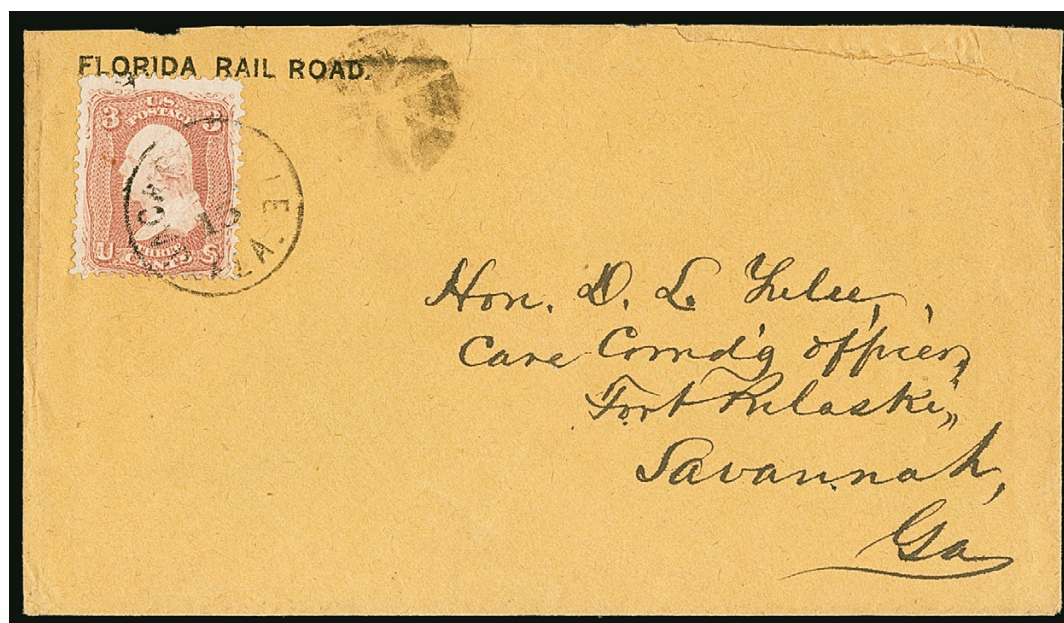 FLORIDA RAIL ROAD.
3 U S POSTAGE 3
U THREE CENTS S
18
FLA.
Hon. D. L. Yulee,
Care Comd'g officer,
Fort Pulaski,
Savannah,
Ga